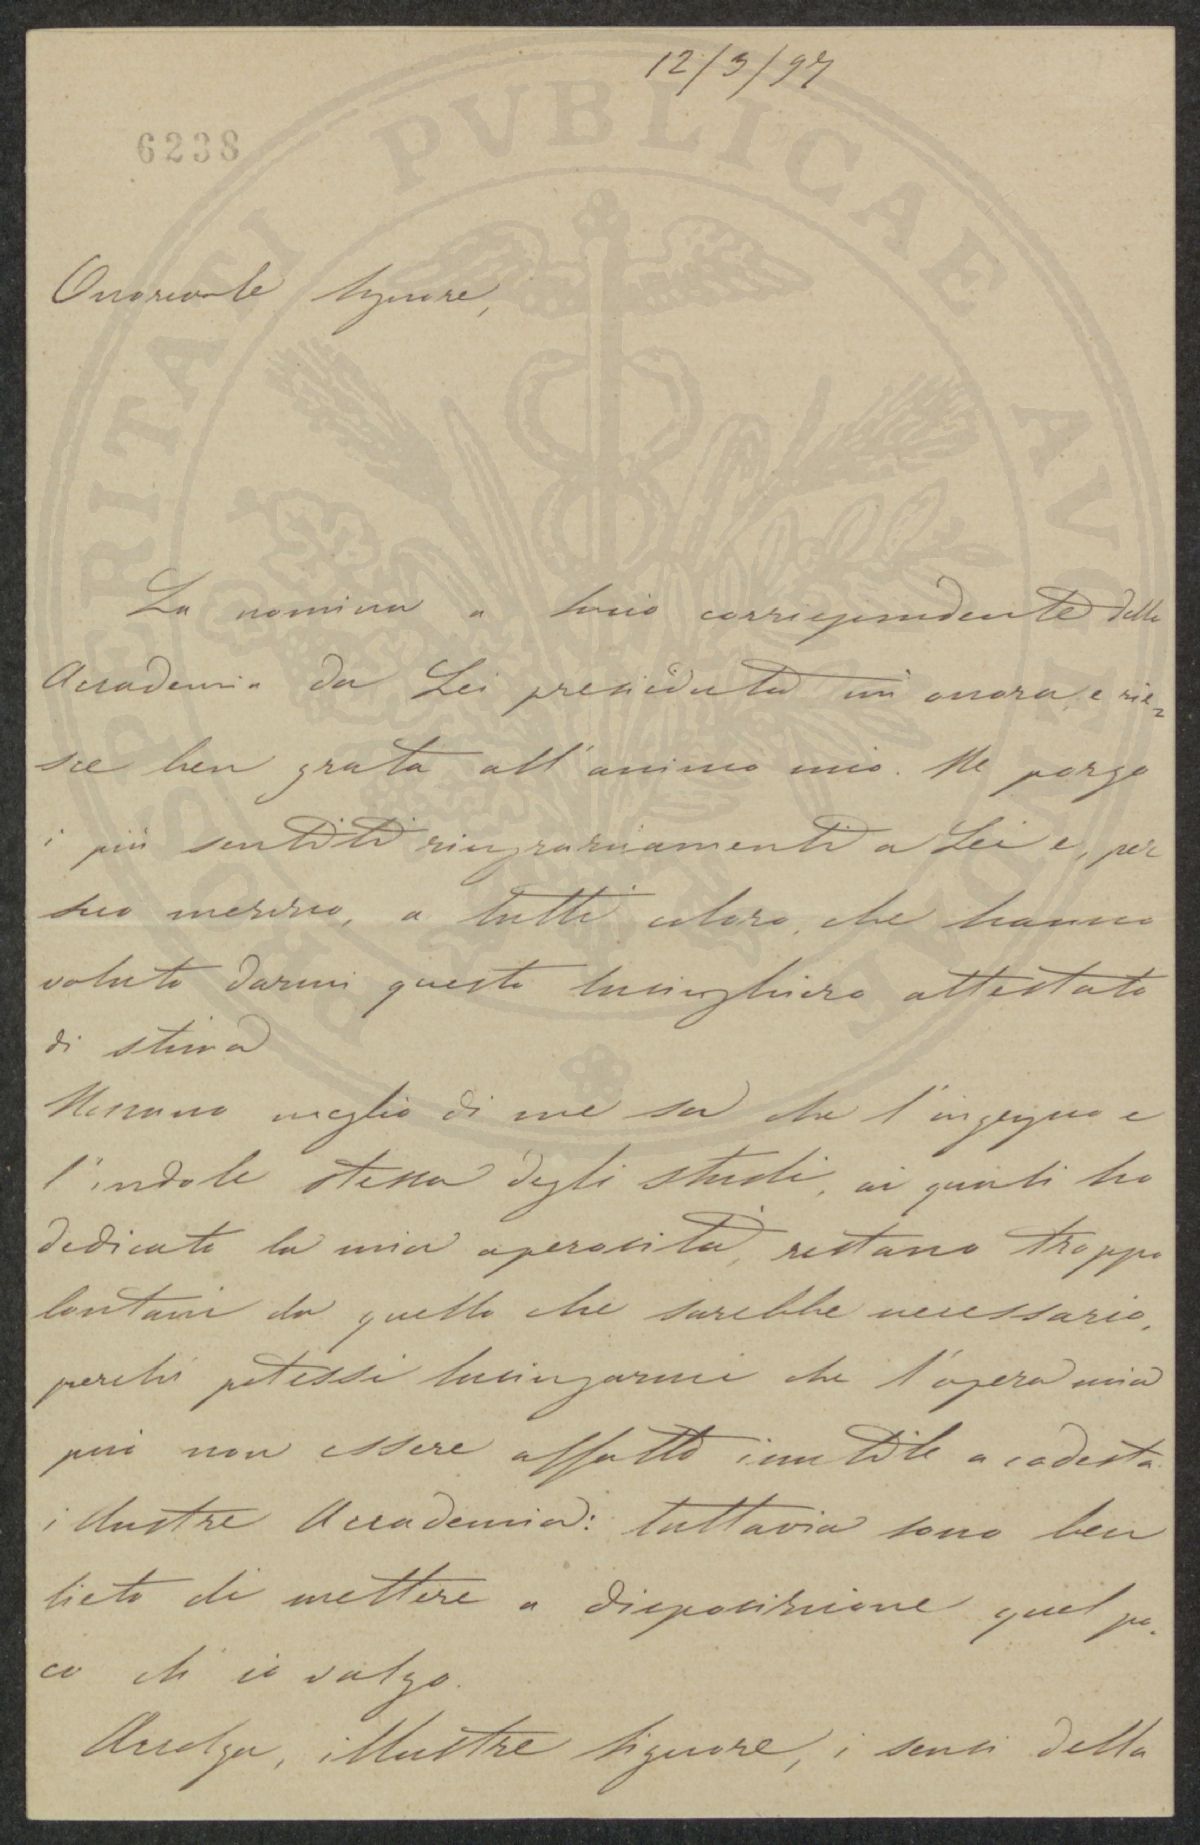 12/3/97
6238
PROSPERITATI PVBLICAE AVGENDAE
Onorevole Signore,
La nomina a socio corrispondente della
Accademia da Lei presieduta mi onora e rie-
sce ben grata all'animo mio. Ne porgo
i più sentiti ringraziamenti a Lei e, per
suo mezzo, a tutti coloro, che hanno
voluto darmi questo lusinghiero attestato
di stima
Nessuno meglio di me sa che l'ingegno e
l'indole stessa degli studi, ai quali ho
dedicato la mia operosità, restano troppo
lontani da quello che sarebbe necessario,
perchè potessi lusingarmi che l'opera mia
può non essere affatto inutile a codesta
illustre Accademia: tuttavia sono ben
lieto di mettere a disposizione quel po-
co ch'io valgo.
Accolga, illustre Signore, i sensi della